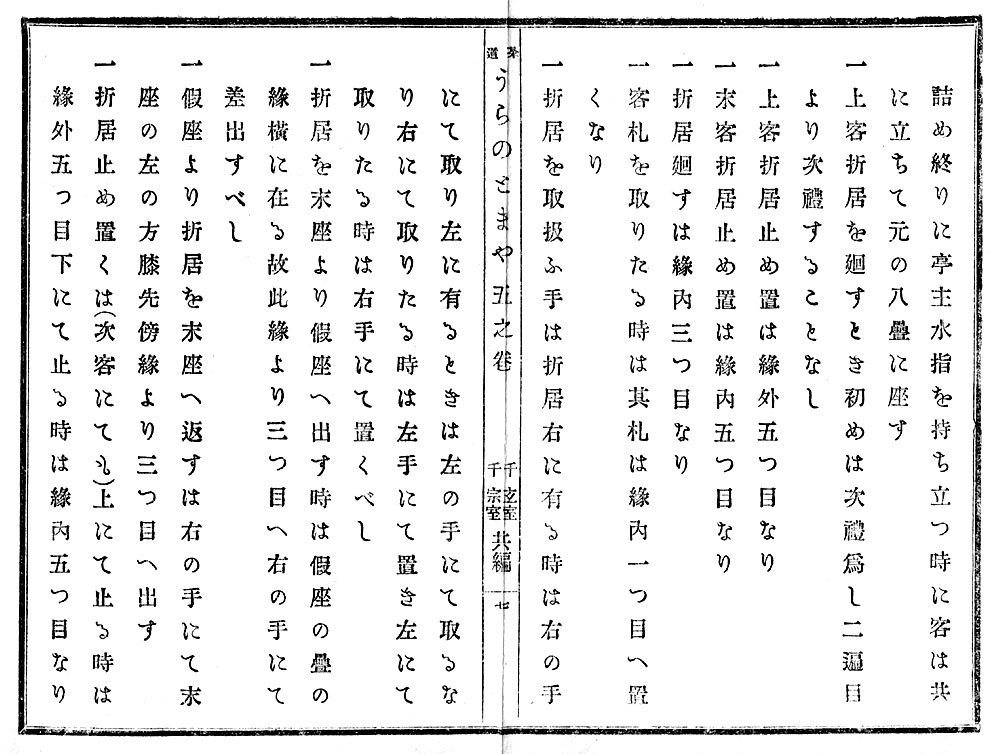 詰め終りに亭主水指を持ち立つ時に客は共
に立ちて元の八疊に座す
一上客折居を廻すとき初めは次禮爲し二遍目
より次禮することなし
一上客折居止め置は緣外五つ目なり
一末客折居止め置は緣内五つ目なり
一折居廻すは緣内三つ目なり
一客札を取りたる時は其札は緣内一つ目へ置
くなり
一折居を取扱ふ手は折居右に有る時は右の手
茶道
うらのとまや五之卷
千玄室
千宗室
共編
七
にて取り左に有るときは左の手にて取るな
り右にて取りたる時は左手にて置き左にて
取りたる時は右手にて置くべし
一折居を末座より假座へ出す時は假座の疊の
緣横に在る故此緣より三つ目へ右の手にて
差出すべし
一假座より折居を末座へ返すは右の手にて末
座の左の方膝先傍緣より三つ目へ出す
一折居止め置くは(次客にても)上にて止る時は
緣外五つ目下にて止る時は緣内五つ目なり